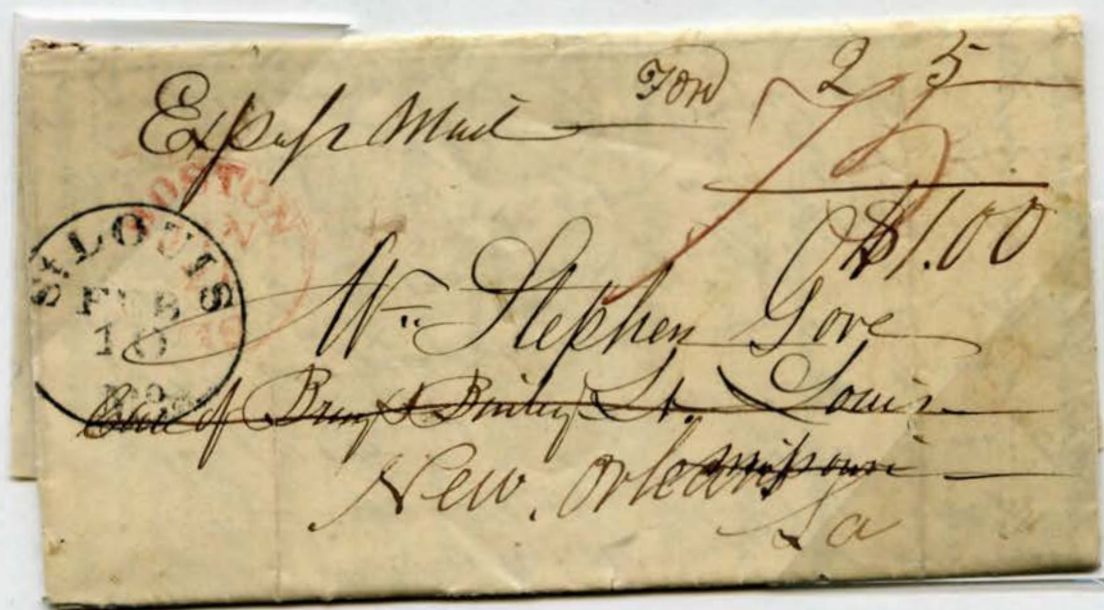 Express Mail
Ford 25
75
$1.00
BOSTON
JAN
16
St. LOUIS
FEB
10
Mo.
Mr. Stephen Gore
Care of Bray & Bailey St. Louis
Missouri
New Orleans
La